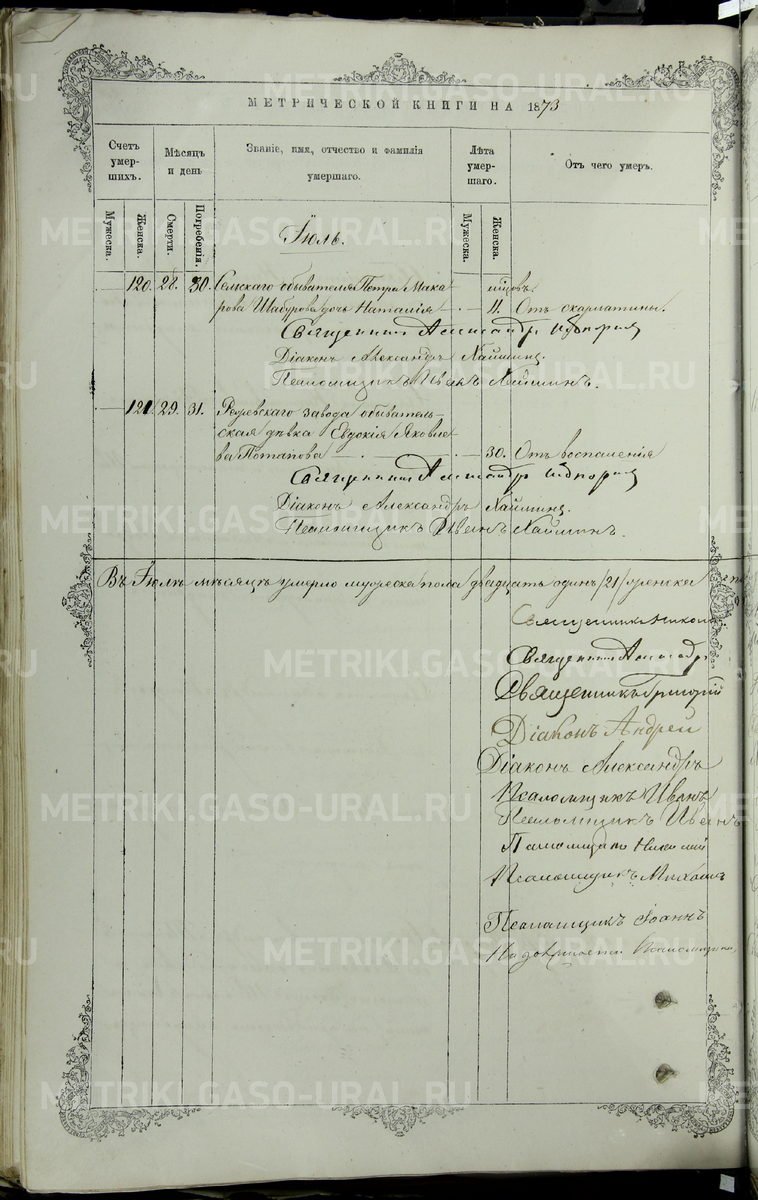 МЕТРИЧЕСКОЙ КНИГИ НА 1873
Счетъ умершихъ.
Мѣсяцъ и день
Званіе, имя, отчество и фамилія умершаго.
Лѣта умершаго.
Отъ чего умеръ.
Мужеска.
Женска.
Смерти.
Погребенія.
Мужеска.
Женска.
Іюль.
120. 28. 30. Сельскаго обывателя Петра Мака-
рова Шабурова дочь Наталія — 11. Отъ скарлатины.
Священникъ Александръ
Діаконъ Александръ Хаймин.
Псаломщикъ Иванъ Хайминъ.
121. 29. 31. Режевскаго завода обыватель-
ская дѣвка Евдокія Яковле-
ва Потапова — 30. Отъ воспаленія
Священникъ Александръ
Діаконъ Александръ Хаймин.
Псаломщикъ Иванъ Хайминъ.
Въ Іюлѣ мѣсяцѣ умерло мужеска пола двадцать одинъ /21/ женска
Священникъ Никола
Священникъ Александръ
Священникъ Григорій
Діаконъ Андрей
Діаконъ Александръ
Псаломщикъ Иванъ
Псаломщикъ Иванъ
Псаломщикъ Николай
Псаломщикъ Михаилъ
Псаломщикъ Іоаннъ
METRIKI.GASO-URAL.RU